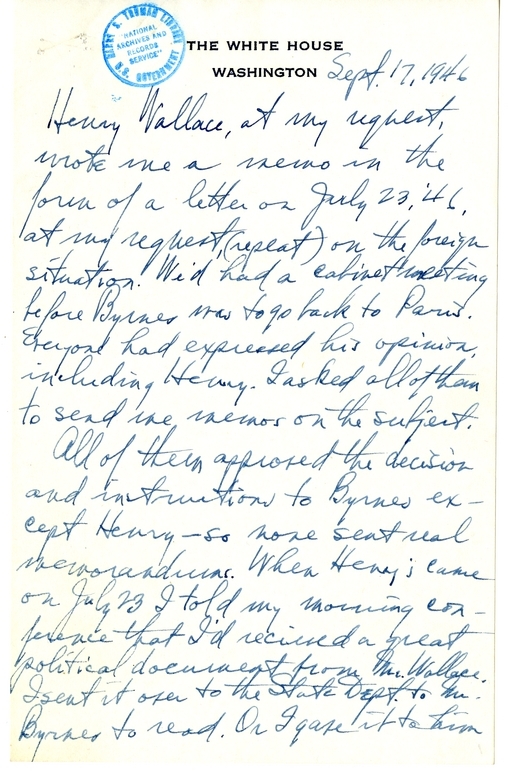 HARRY S. TRUMAN LIBRARY
"NATIONAL
ARCHIVES AND
RECORDS
SERVICE"
U.S. GOVERNMENT
THE WHITE HOUSE
WASHINGTON
Sept. 17, 1946
Henry Wallace, at my request,
wrote me a memo in the
form of a letter on July 23, '46,
at my request, (repeat) on the foreign
situation. We'd had a cabinet meeting
before Byrnes was to go back to Paris.
Everyone had expressed his opinion,
including Henry. I asked all of them
to send me memos on the subject.
All of them approved the decision
and instructions to Byrnes ex-
cept Henry—so none sent real
memorandums. When Henry's came
on July 23 I told my morning con-
ference that I'd recieved a great
political document from Mr. Wallace.
I sent it over to the State Dept. to Mr.
Byrnes to read. Or I gave it to him